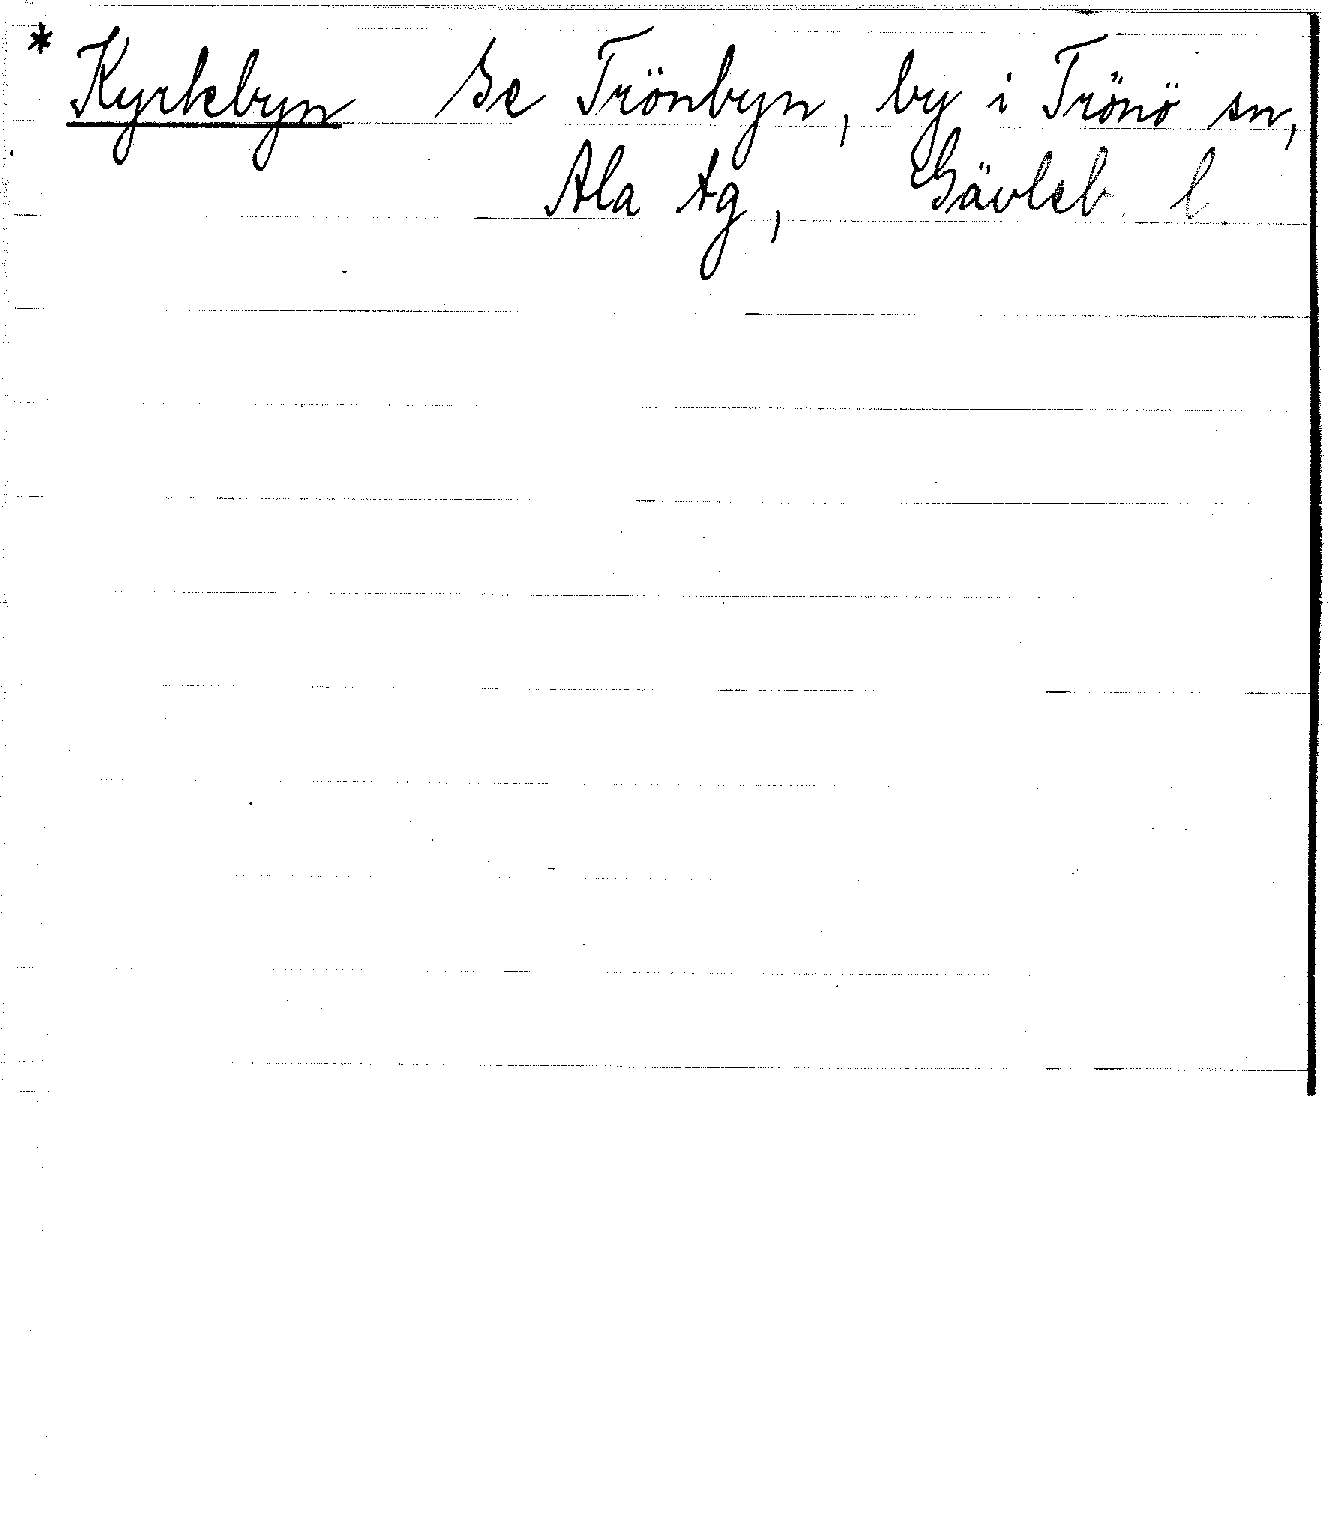 * Kyrkebyn Se Trönbyn, by i Trönö sn,
Ala tg, Gävleb. l